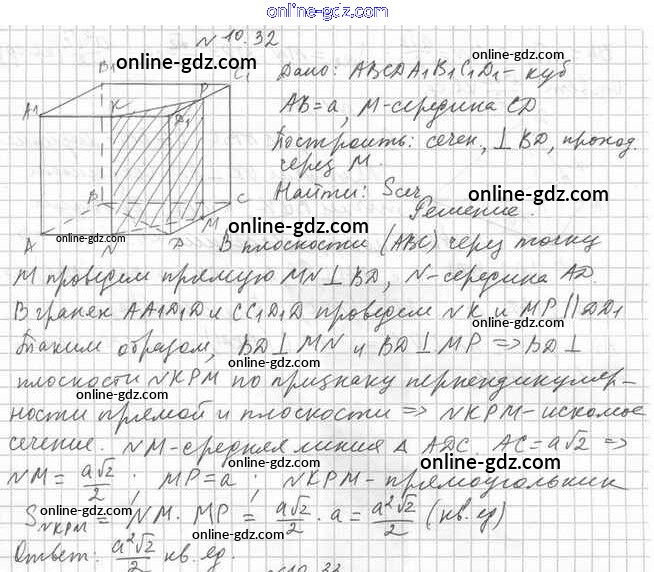 online-gdz.com
№ 10.32
online-gdz.com
online-gdz.com
B1 C1
Дано: ABCDA1B1C1D1 - куб
A1 K P D1
AB = a, M - середина CD
online-gdz.com
Построить: сечен, ⊥ BD, проход.
через M.
B C
Найти: Sсеч
online-gdz.com
Решение.
online-gdz.com
online-gdz.com
A N D M
В плоскости (ABC) через точку
M проведем прямую MN ⊥ BD, N - середина AD.
online-gdz.com
В гранях AA1D1D и CC1D1D проведем NK и MP || DD1
online-gdz.com
Таким образом, BD ⊥ MN и BD ⊥ MP => BD ⊥
online-gdz.com
плоскости NKPM по признаку перпендикуляр-
online-gdz.com
ности прямой и плоскости => NKPM - искомое
online-gdz.com
сечение. NM - средняя линия Δ ADC. AC = a√2 =>
online-gdz.com
NM = a√2/2 ; MP = a ; NKPM - прямоугольник
online-gdz.com
S NKPM = NM · MP = a√2/2 · a = a²√2/2 (кв. ед)
online-gdz.com
Ответ: a²√2/2 кв. ед.
online-gdz.com
№10.33